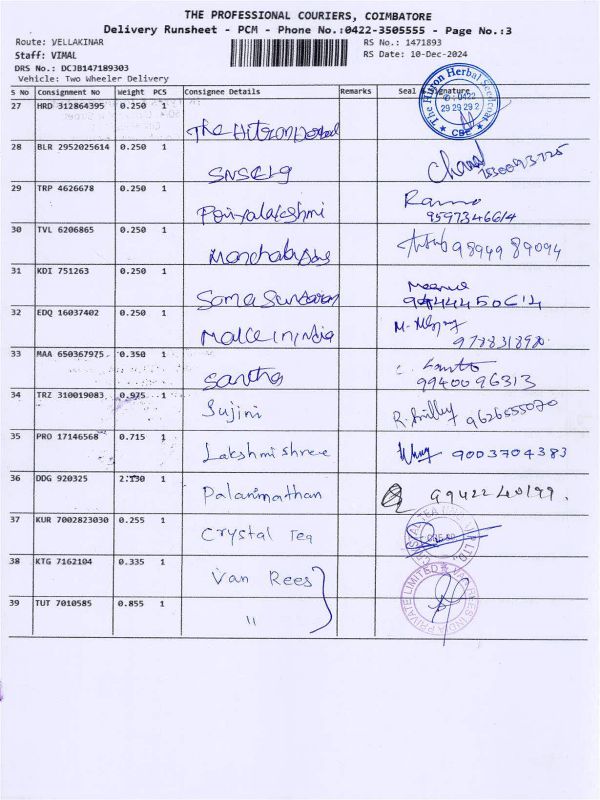 THE PROFESSIONAL COURIERS, COIMBATORE
Delivery Runsheet - PCM - Phone No.:0422-3505555 - Page No.:3
Route: VELLAKINAR
RS No.: 1471893
Staff: VIMAL
RS Date: 10-Dec-2024
DRS No.: DCJB147189303
Vehicle: Two Wheeler Delivery
S No Consignment No Weight PCS Consignee Details Remarks Seal & Signature
The Hilton Herbal
0422
29 29 29 2
CBE
27 HRD 312864395 0.250 1
28 BLR 2952025614 0.250 1 SNSCLG
29 TRP 4626678 0.250 1 Poiyalakshmi
9597346614
30 TVL 6206865 0.250 1 9894989094
31 KDI 751263 0.250 1 Soma Sundaram
32 EDQ 16037402 0.250 1 Make in india
33 MAA 650367975 0.350 1 Santha
9940096313
34 TRZ 310019083 0.975 1 Sujini 9626555070
35 PRO 17146568 0.715 1 Lakshmi shree 9003704383
36 DDG 920325 2.130 1 Palanimathan 9942240199.
37 KUR 7002823030 0.255 1 Crystal Tea
38 KTG 7162104 0.335 1 Van Rees
PRIVATE LIMITED
39 TUT 7010585 0.855 1 "